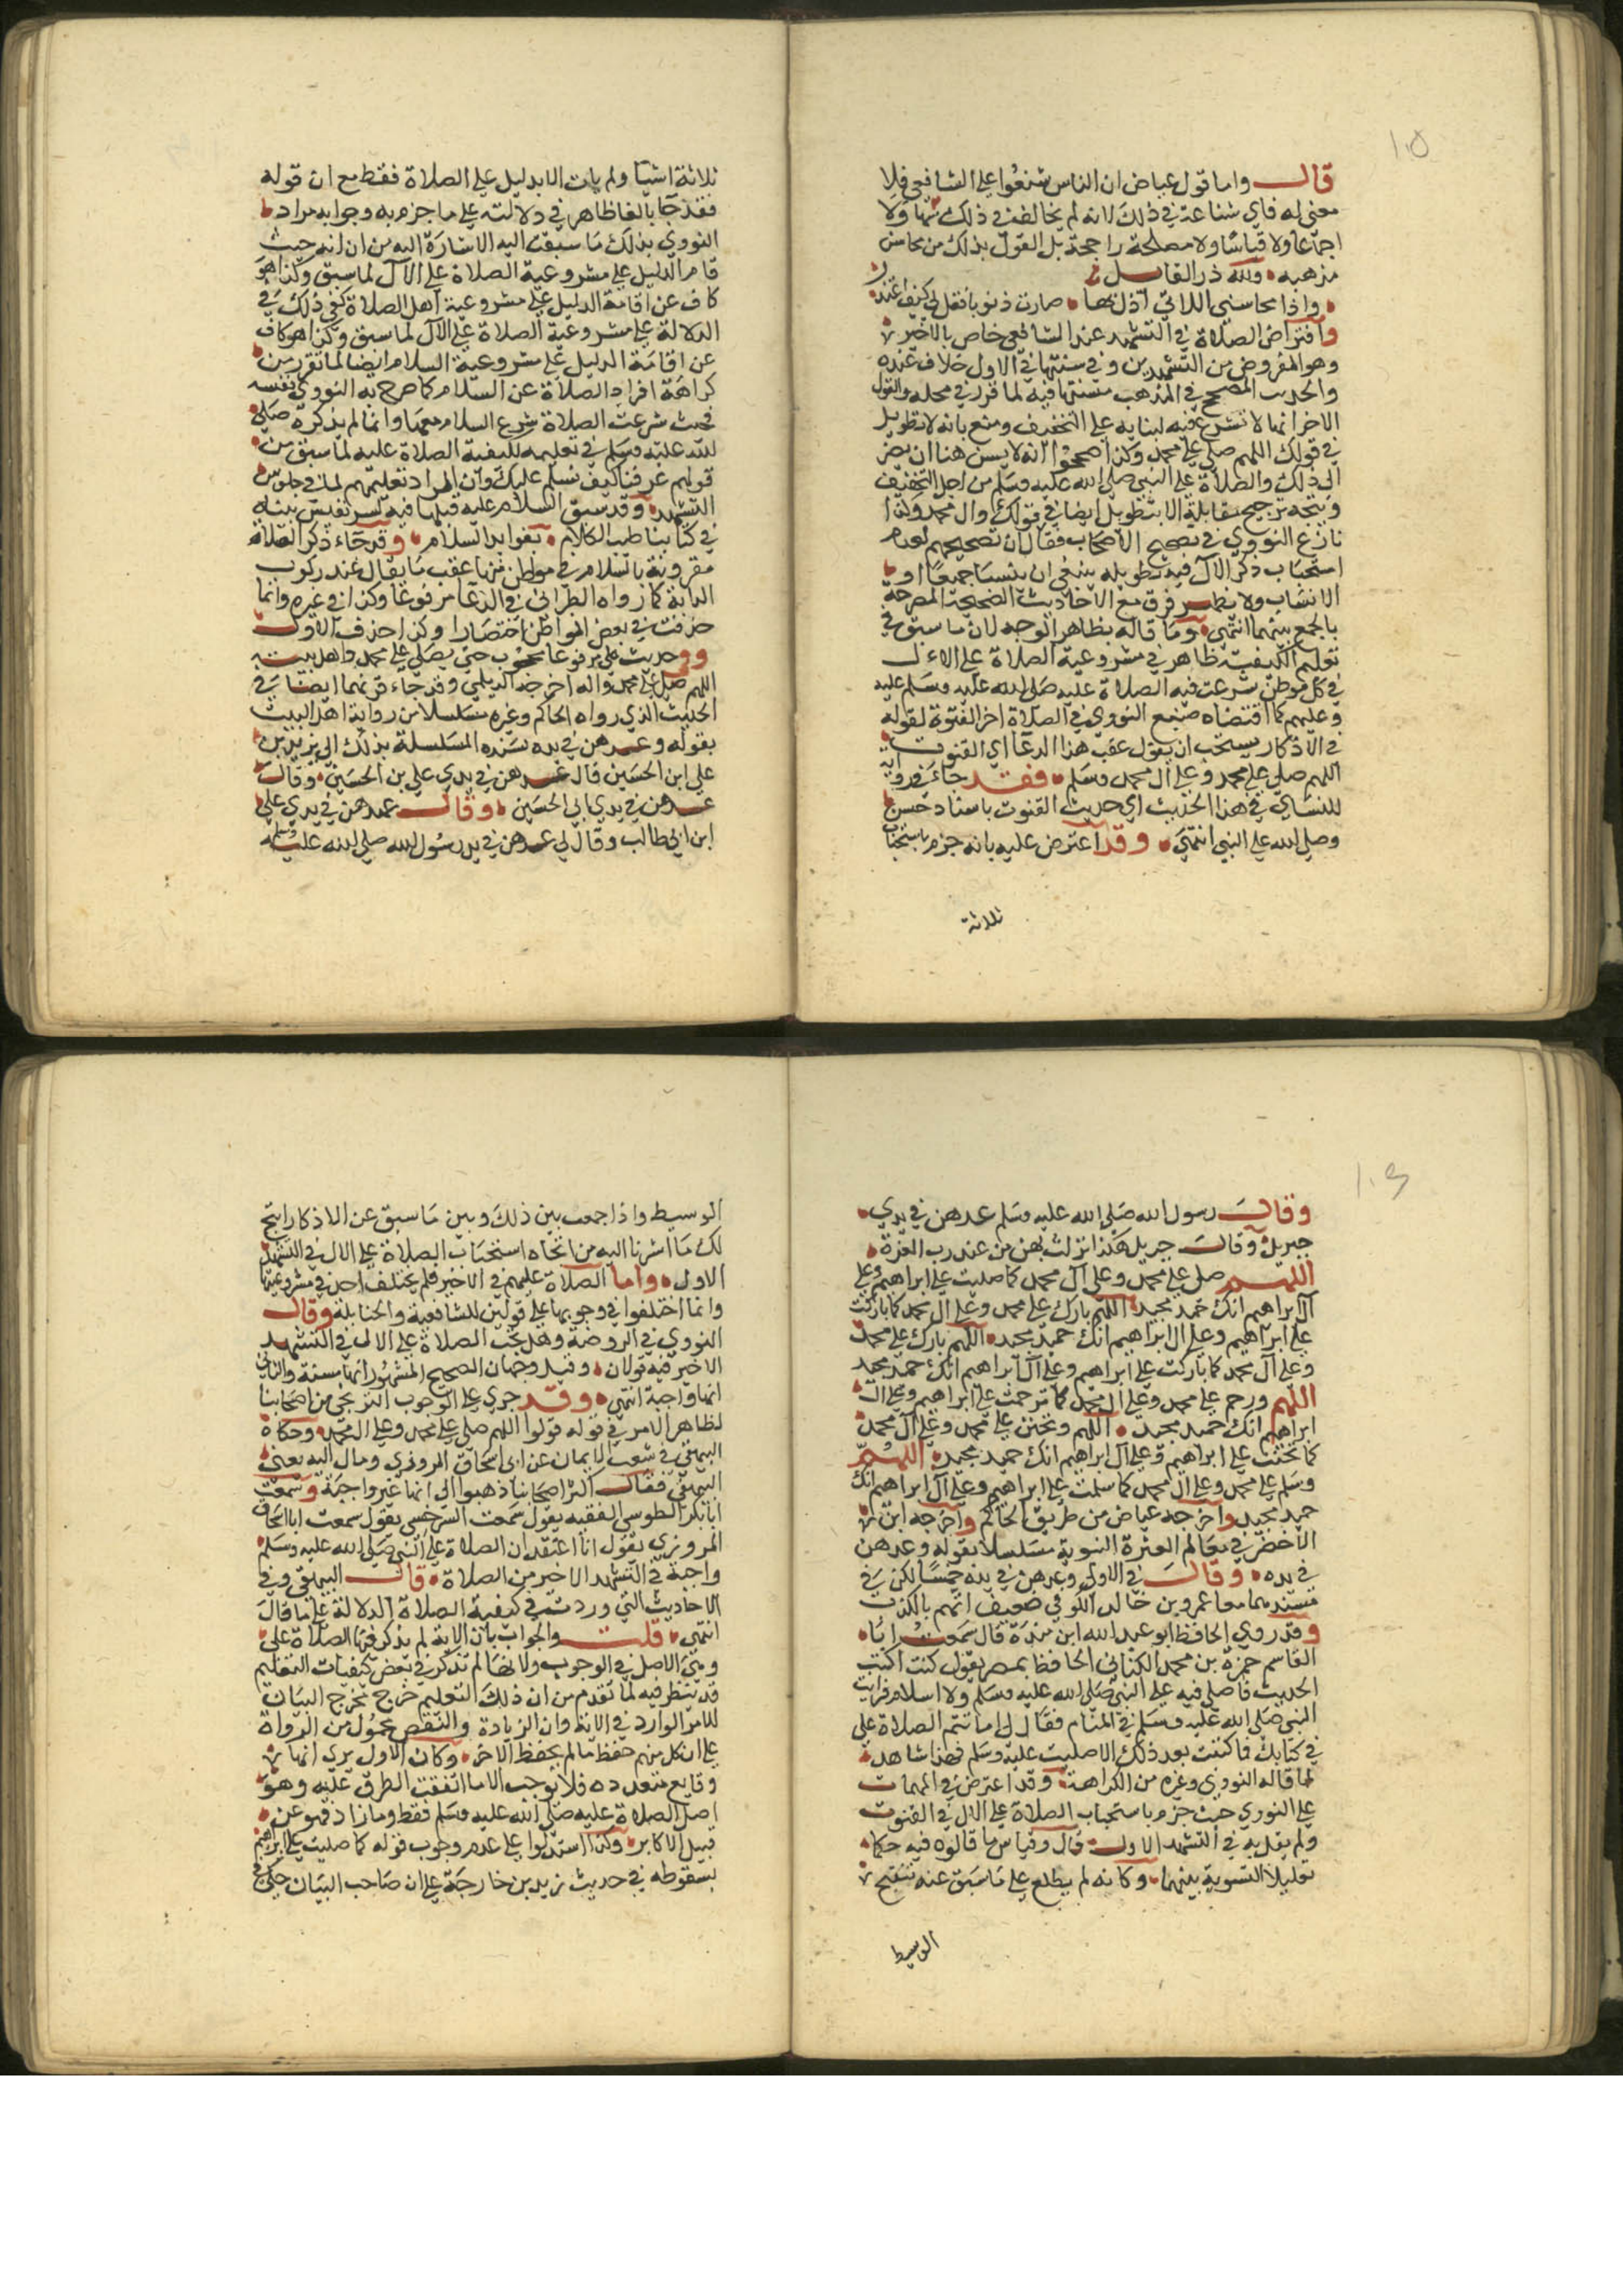 ١٠٥
قال واما قول عياض ان الناس شنعوا على الشافعي فلا
معنى له فاي شناعة في ذلك لانه لم يخالف في ذلك نصا ولا
اجماعا ولا قياسا ولا مصلحة راجحة بل القول بذلك من محاسن
مذهبه ولله در القايل
واذا محاسني اللاتي ادل بها صارت ذنوبا فقل لي كيف اعتذر
وافتراض الصلاة في التشهد عند الشافعي خاص بالاخير
وهو المفروض من التشهدين وفي سنتها في الاول خلاف عنده
والجديد المصحح في المذهب سنتها فيه لما قرر في محله والقول
الاخر انها لا تشرع فيه لبنايه على التخفيف ومنع بانه لا تطويل
في قولك اللهم صلي على محمد وكذا صححوا انه لا يسن هنا ان يضم
الى ذلك والصلاة على النبي صلى الله عليه وسلم من اجل التخفيف
ويتجه ترجيح مقابله الا بتطويل ايضا في قولك وال محمد وكذا
نازع النووي في تصحيح الاصحاب فقال ان تصحيحهم لعدم
استحباب ذكر الآل فيه تطويله ينبغي ان يسنا جميعا او
لا يسناب ولا يظهر فرق مع الاحاديث الصحيحة المصرحة
بالجمع بينهما انتهى وما قاله بظاهر الوجه لان ما سبق في
تعليم الكيفية ظاهر في مشروعية الصلاة على الاول
في كل موطن شرعت فيه الصلاة عليه صلى الله عليه وسلم عليه
وعليهم كما اقتضاه صنيع النووي في الصلاة اخر القنوت لقوله
في الاذكار يستحب ان يقول عقب هذا الدعا اي القنوت
اللهم صلي على محمد وعلى ال محمد وسلم فقد جاء في رواية
للنساي في هذا الحديث اي حديث القنوت باسناد حسن
وصلى الله على النبي انتهى وقد اعترض عليه بانه جزم باستحباب
ثلاثة
ثلاثة اشيا ولم يات الا بدليل على الصلاة فقط مع ان قوله
فقد جا بالفا ظاهر في دلالته على ما جزم به وجوابه مراد
النووي بذلك ما سبقت اليه الاشارة اليه من ان انه حيث
قام الدليل على مشروعية الصلاة على الآل لما سبق وكذا هو
كاف عن اقامة الدليل على مشروعية اهل الصلاة كفى ذلك في
الدلالة على مشروعية الصلاة على الآل لما سبق وكذا هو كاف
عن اقامة الدليل على مشروعية السلام ايضا لما تقرر من
كراهة افراد الصلاة عن السلام كما صرح به النووي نفسه
فحيث شرعت الصلاة شرع السلام معها وانما لم يذكره صلى
الله عليه وسلم في تعليمه لكيفية الصلاة عليه لما سبق من
قولهم عرفنا كيف نسلم عليك وان المراد تعليمهم لما في جلوس
التشهد وقد سبق السلام عليه قبلها فيه لسر نفيس بيناه
في كتابنا طيب الكلام بفوايد السلام وقد جاء ذكر الصلاة
مقرونة بالسلام في مواطن منها عقب ما يقال عند ركوب
الدابة كما رواه الطبراني في الدعا مرفوعا وكذا في غيره وانما
حذفت في بعض المواطن اختصارا وكذا حذف الاول
وحديث علي مرفوعا محجوب حتى يصلى على محمد واهل بيته
اللهم صل على محمد واله اخرجه الديلمي وقد جاء قرنهما ايضا في
الحديث الذي رواه الحاكم وغيره مسلسلا من رواية اهل البيت
بقوله وعدهن في يده بسنده المسلسلة بذلك الى زيد بن
علي ابن الحسين قال عدهن في يدي علي بن الحسين وقال
عدهن في يدي ابي الحسين وقال عدهن في يدي علي
ابن ابي طالب وقال لي عدهن في يد رسول الله صلى الله عليه وسلم
١٠٦
وقال رسول الله صلى الله عليه وسلم عدهن في يدي
جبريل وقال جبريل هكذا نزلت بهن من عند رب العزة
اللهم صل على محمد وعلى آل محمد كما صليت على ابراهيم وعلى
آل ابراهيم انك حميد مجيد اللهم بارك على محمد وعلى ال محمد كما باركت
على ابراهيم وعلى ال ابراهيم انك حميد مجيد اللهم بارك على محمد
وعلى آل محمد كما باركت على ابراهيم وعلى آل ابراهيم انك حميد مجيد
اللهم ورحم على محمد وعلى ال محمد كما ترحمت على ابراهيم وعلى ال
ابراهيم انك حميد مجيد اللهم وتحنن على محمد وعلى آل محمد
كما تحننت على ابراهيم وعلى آل ابراهيم انك حميد مجيد اللهم
وسلم على محمد وعلى ال محمد كما سلمت على ابراهيم وعلى آل ابراهيم انك
حميد مجيد واخرجه عياض من طريق الحاكم واخرجه ابن
الاخضر في معالم العترة النبوية مسلسلا بقوله وعدهن
في يده وقال في الاول وعدهن في يده خمسا لكن في
مسندهما معا عمرو بن خالد الكوفي ضعيف اتهم بالكذب
وقد روي الحافظ ابو عبد الله ابن مندة قال سمعت ابا
القاسم حمزة بن محمد الكناني الحافظ بمصر يقول كنت اكتب
الحديث فاصلي فيه على النبي صلى الله عليه وسلم ولا اسلم فرايت
النبي صلى الله عليه وسلم في المنام فقال لي اما تتم الصلاة علي
في كتابك فما كتبت بعد ذلك الا صليت عليه وسلم فهذا شاهد
لما قاله النووي وغيره من الكراهة وقد اعترض في المهمات
على النووي حيث جزم باستحباب الصلاة على الال في القنوت
ولم يقل به في التشهد الاول قال وقياس ما قالوه فيه حكما
تعليلا التسوية بينهما وكانه لم يطلع على ما سبق عنه تنقيح
الوسيط
الوسيط واذا جمعت بين ذلك وبين ما سبق عن الاذكار اتجه
لك ما اشرنا اليه من اتجاه استحباب الصلاة على الال في التشهد
الاول واما الصلاة عليهم في الاخير فلم يختلف احد في مشروعيتها
وانما اختلفوا في وجوبها على قولين للشافعية والحنابلة وقال
النووي في الروضة وهل تجب الصلاة على الال في التشهد
الاخير فيه قولان وقيل وجهان الصحيح المشهور انها سنة والثاني
انها واجبة انتهى وقد جرى على الوجوب الترنجي من اصحابنا
لظاهر الامر في قوله قولوا اللهم صلي على محمد وعلى ال محمد وحكاه
البيهقي في شعب الايمان عن ابي اسحاق المروزي ومال اليه يعني
البيهقي فقال اكثر اصحابنا ذهبوا الى انها غير واجبة وسمعت
ابا بكر الطوسي الفقيه يقول سمعت السرخسي يقول سمعت ابا اسحاق
المروزي يقول انا اعتقد ان الصلاة على النبي صلى الله عليه وسلم
واجبة في التشهد الاخير من الصلاة قال البيهقي وفي
الاحاديث التي وردت في كيفية الصلاة الدلالة على ما قال
انتهى قلت والجواب بان الاية لم يذكر فيها الصلاة على
وبيَ الاصل في الوجوب ولانها لم تذكر في بعض كيفيات التعليم
قد ينظر فيه لما تقدم من ان ذلك التعليم خرج مخرج البيان
للامر الوارد في الاية وان الزيادة والنقص محمول من الرواة
على ان كل منهم حفظ ما لم يحفظ الاخر وكان الاول يرى انها
وقايع متعدده فلا نوجب الا ما اتفقت الطرق عليه وهو
اصل الصلاة عليه صلى الله عليه وسلم فقط وما زاد فهو عن
قبيل الاكابر وكذا استدلوا على عدم وجوب قوله كما صليت على ابراهيم
بسقوطه في حديث زيد بن خارجة على ان صاحب البيان حكى في